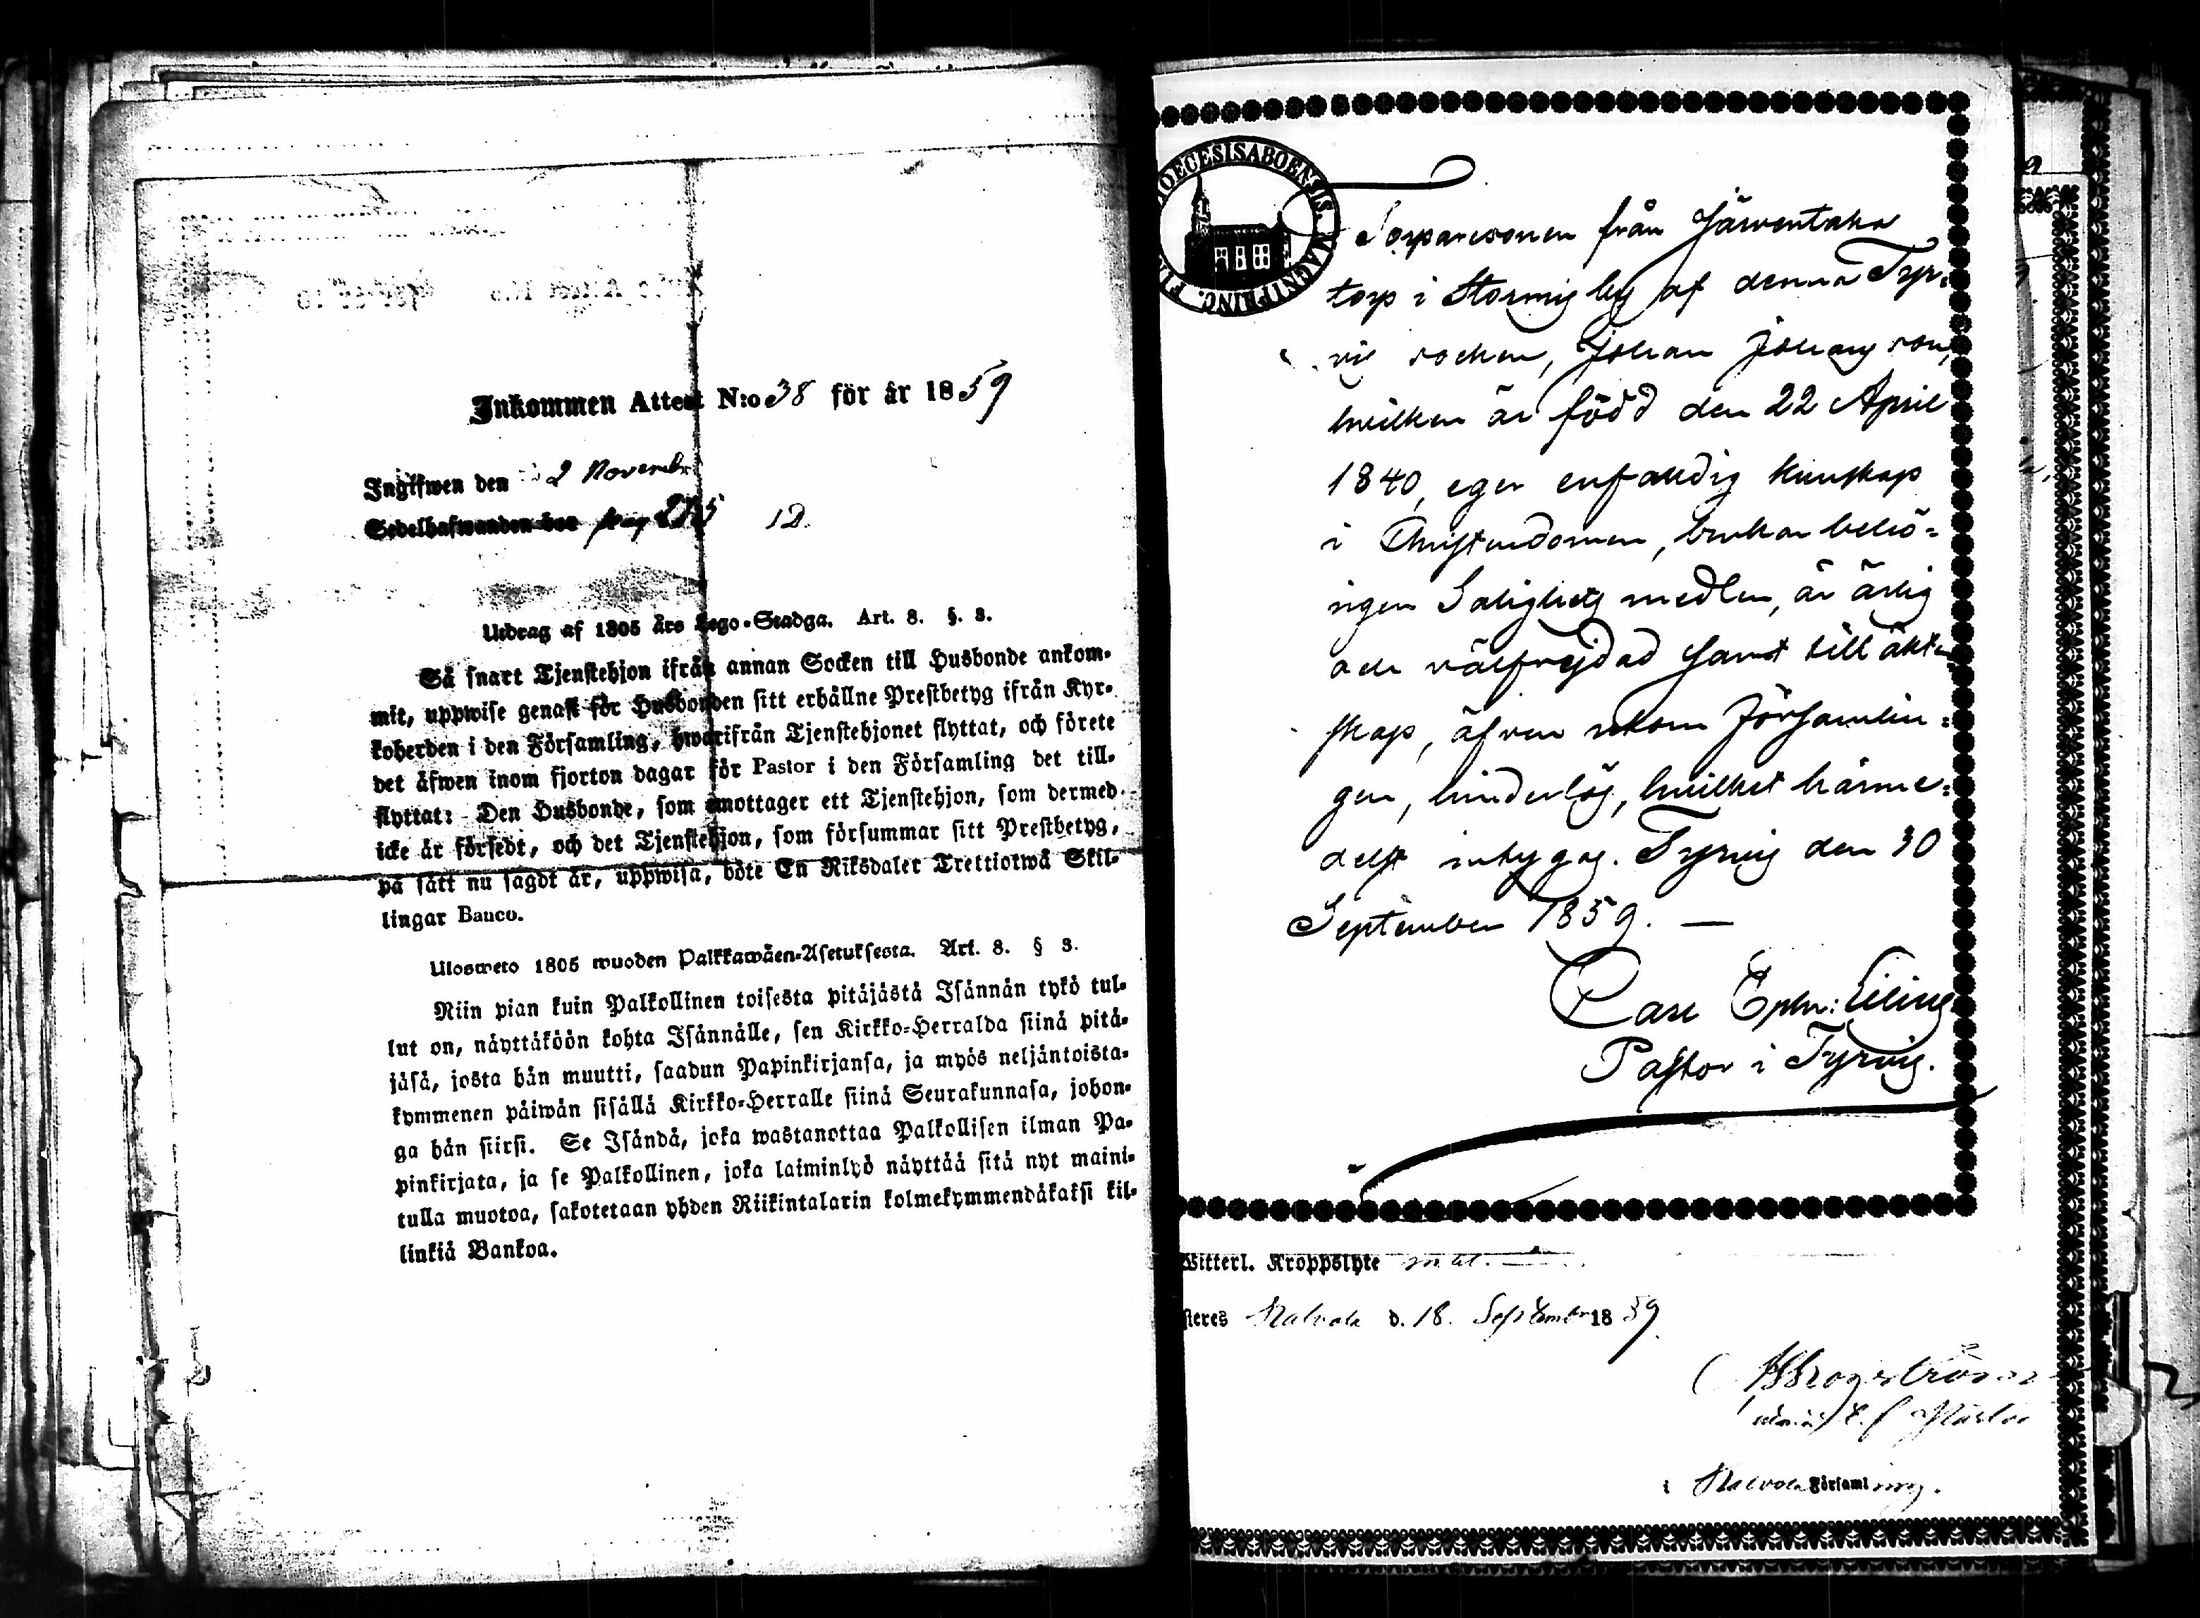 Inkommen Attest N:o 38 för år 1859
Ingifwen den 2 Novembr
Sedelhafwanden bor pag 275 12.
Utdrag af 1805 års Lego-Stadga. Art. 8. §. 3.
Så snart Tjenstehjon ifrån annan Socken till Husbonde ankom-
mit, uppwise genast för Husbonden sitt erhållne Prestbetyg ifrån Kyr-
koherden i den Församling, hwarifrån Tjenstehjonet flyttat, och förete
det äfwen inom fjorton dagar för Pastor i den Församling det till-
flyttat: Den Husbonde, som emottager ett Tjenstehjon, som dermed
icke är försedt, och det Tjenstehjon, som försummar sitt Prestbetyg,
på sätt nu sagdt är, uppwisa, böte En Riksdaler Trettiotwå Skil-
lingar Banco.
Ulosweto 1805 wuoden Palkkawäen-Asetuksesta. Art. 8. § 3.
Niin pian kuin Palkollinen toisesta pitäjästä Isännän tykö tul-
lut on, näyttäköön kohta Isännälle, sen Kirkko-Herralda siinä pitä-
jäsä, josta hän muutti, saadun Papinkirjansa, ja myös neljäntoista-
kymmenen päiwän sisällä Kirkko-Herralle siinä Seurakunnasa, johon-
ga hän siirsi. Se Isändä, joka wastanottaa Palkollisen ilman Pa-
pinkirjata, ja se Palkollinen, joka laiminlyö näyttää sitä nyt maini-
tulla muotoa, sakotetaan yhden Riikintalarin kolmekymmendäkaksi kil-
linkiä Bankoa.
OECESIS ABOENSIS. MAGN. PRINC. F
Torparesonen från Järventaka
torp i Stormi by af denna Tyr-
vis socken, Johan Johansson,
hvilken är född den 22 April
1840, eger enfaldig kunskap
i Christendomen, brukar behö-
rigen Salighets medlen, är ärlig
och välfrejdad samt till äkten
skap, äfven utom Församlin-
gen, hinderlös, hvilket härme-
delst intygas. Tyrvis den 30
September 1859. —
Carl Ephr: Lilius
Pastor i Tyrvis.
Witterl. Kroppslyte
steres Kalvola d. 18. September 1859.
i Kalvola Församling.